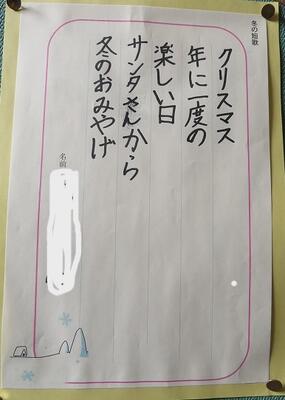 冬の短歌
クリスマス
年に一度の
楽しい日
サンタさんから
冬のおみやげ
名前